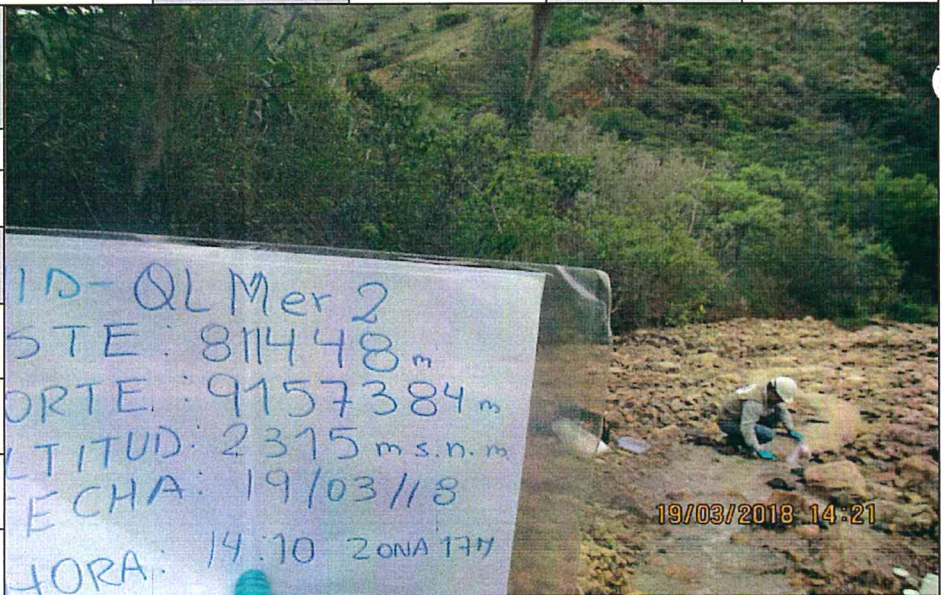 ID-QLMer2
STE: 811448m
ORTE: 9157384m
LTITUD: 2315 m s.n.m
FECHA: 19/03/18
HORA: 14:10 ZONA 17M
19/03/2018 14:21